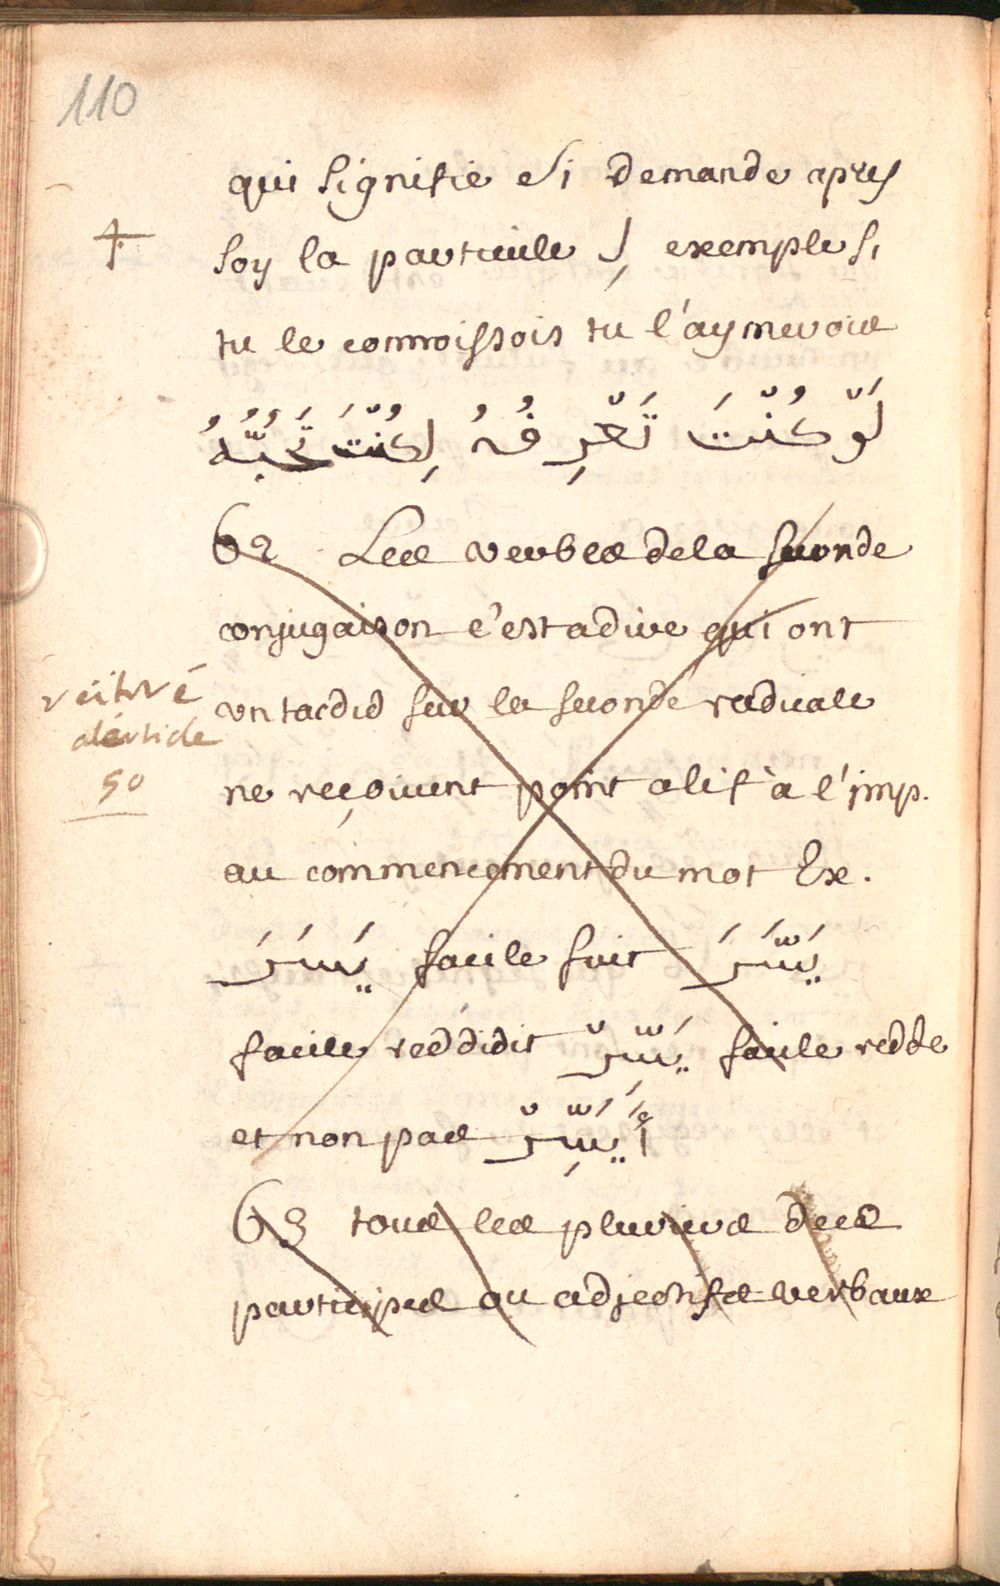 110
qui signifie si demande apres
soy la particule لِ exemple si
tu le connoissois tu l'aymerois
لَوْ كُنْتَ تَعْرِفُهُ لِكُنْتَ تُحِبُّهُ
62 Les verbes de la seconde
conjugaison c'est a dire qui ont
un tacdid sur la seconde radicale
ne reçoivent point alif à l'imp.
au commencement du mot Ex.
يَسَرَ facile fuit يَسَّرَ
facile reddidit يَسِّرْ facile redde
et non pas أَيَسِّرْ
63 tous les pluriers des
participes ou adjectifs verbaux
+
réiteré
alarticle
50